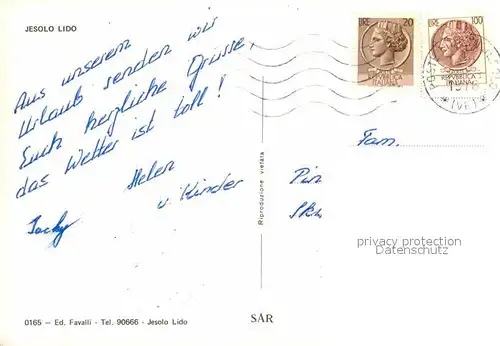 JESOLO LIDO
LIRE 20
LIRE 100
REPUBBLICA
ITALIANA
(VE)
Aus unserem
Urlaub senden wir
Euch herzliche Grüsse,
das Wetter ist toll!
Helen
u. Kinder
Jacky
Riproduzione vietata
Fam.
privacy protection
Datenschutz
0165 — Ed. Favalli - Tel. 90666 - Jesolo Lido
SAR